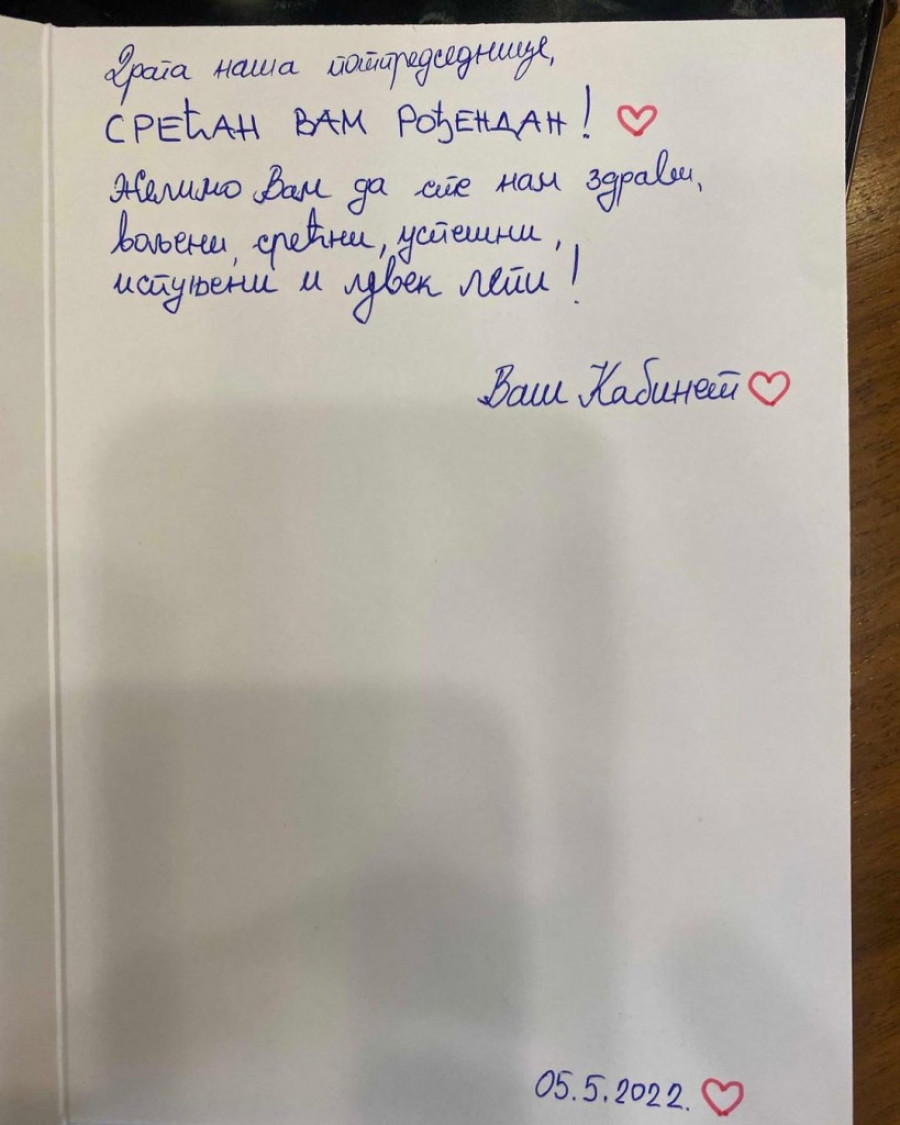 Драга наша потпредседнице,
СРЕЋАН ВАМ РОЂЕНДАН! ❤
Желимо Вам да сте нам здрави,
вољени, срећни, успешни,
испуњени и увек лепи!
Ваш Кабинет ❤
05.5.2022. ❤